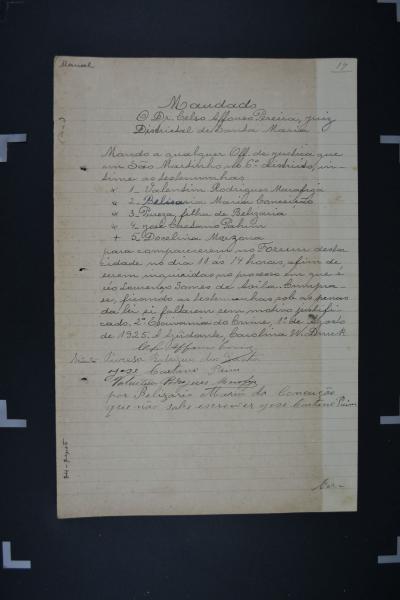 Manoel
19
Mandado
O Dr. Celso Affonso Pereira, juiz
Districtal de Santa Maria
Mando a qualquer Off. de justiça que
em São Martinho, no 6º districto, in-
time as testemunhas
x 1 Valentim Rodrigues
x 2 Belisaria Maria Conceicão
x 3 Pureza, filha de Belizaria
x 4 José Caetano
+ 5 Docelina
para comparecerem no Forum desta
cidade no dia 11 ás 14 horas, afim de
serem inquiridas no processo em que é
réo Lourenço Gomes de Cumpra-
se, ficando as testemunhas sob as penas
da lei si faltarem sem motivo justifi-
cado. 2º Escrivania do Crime, 1º de Agosto
de 1925. A Ajudante, Carolina W.
Celso Affonso
dos Santos
José Caetano
Valentim Rodrigues
por Belizaria Maria da Conceição
que não sabe escrever José Caetano